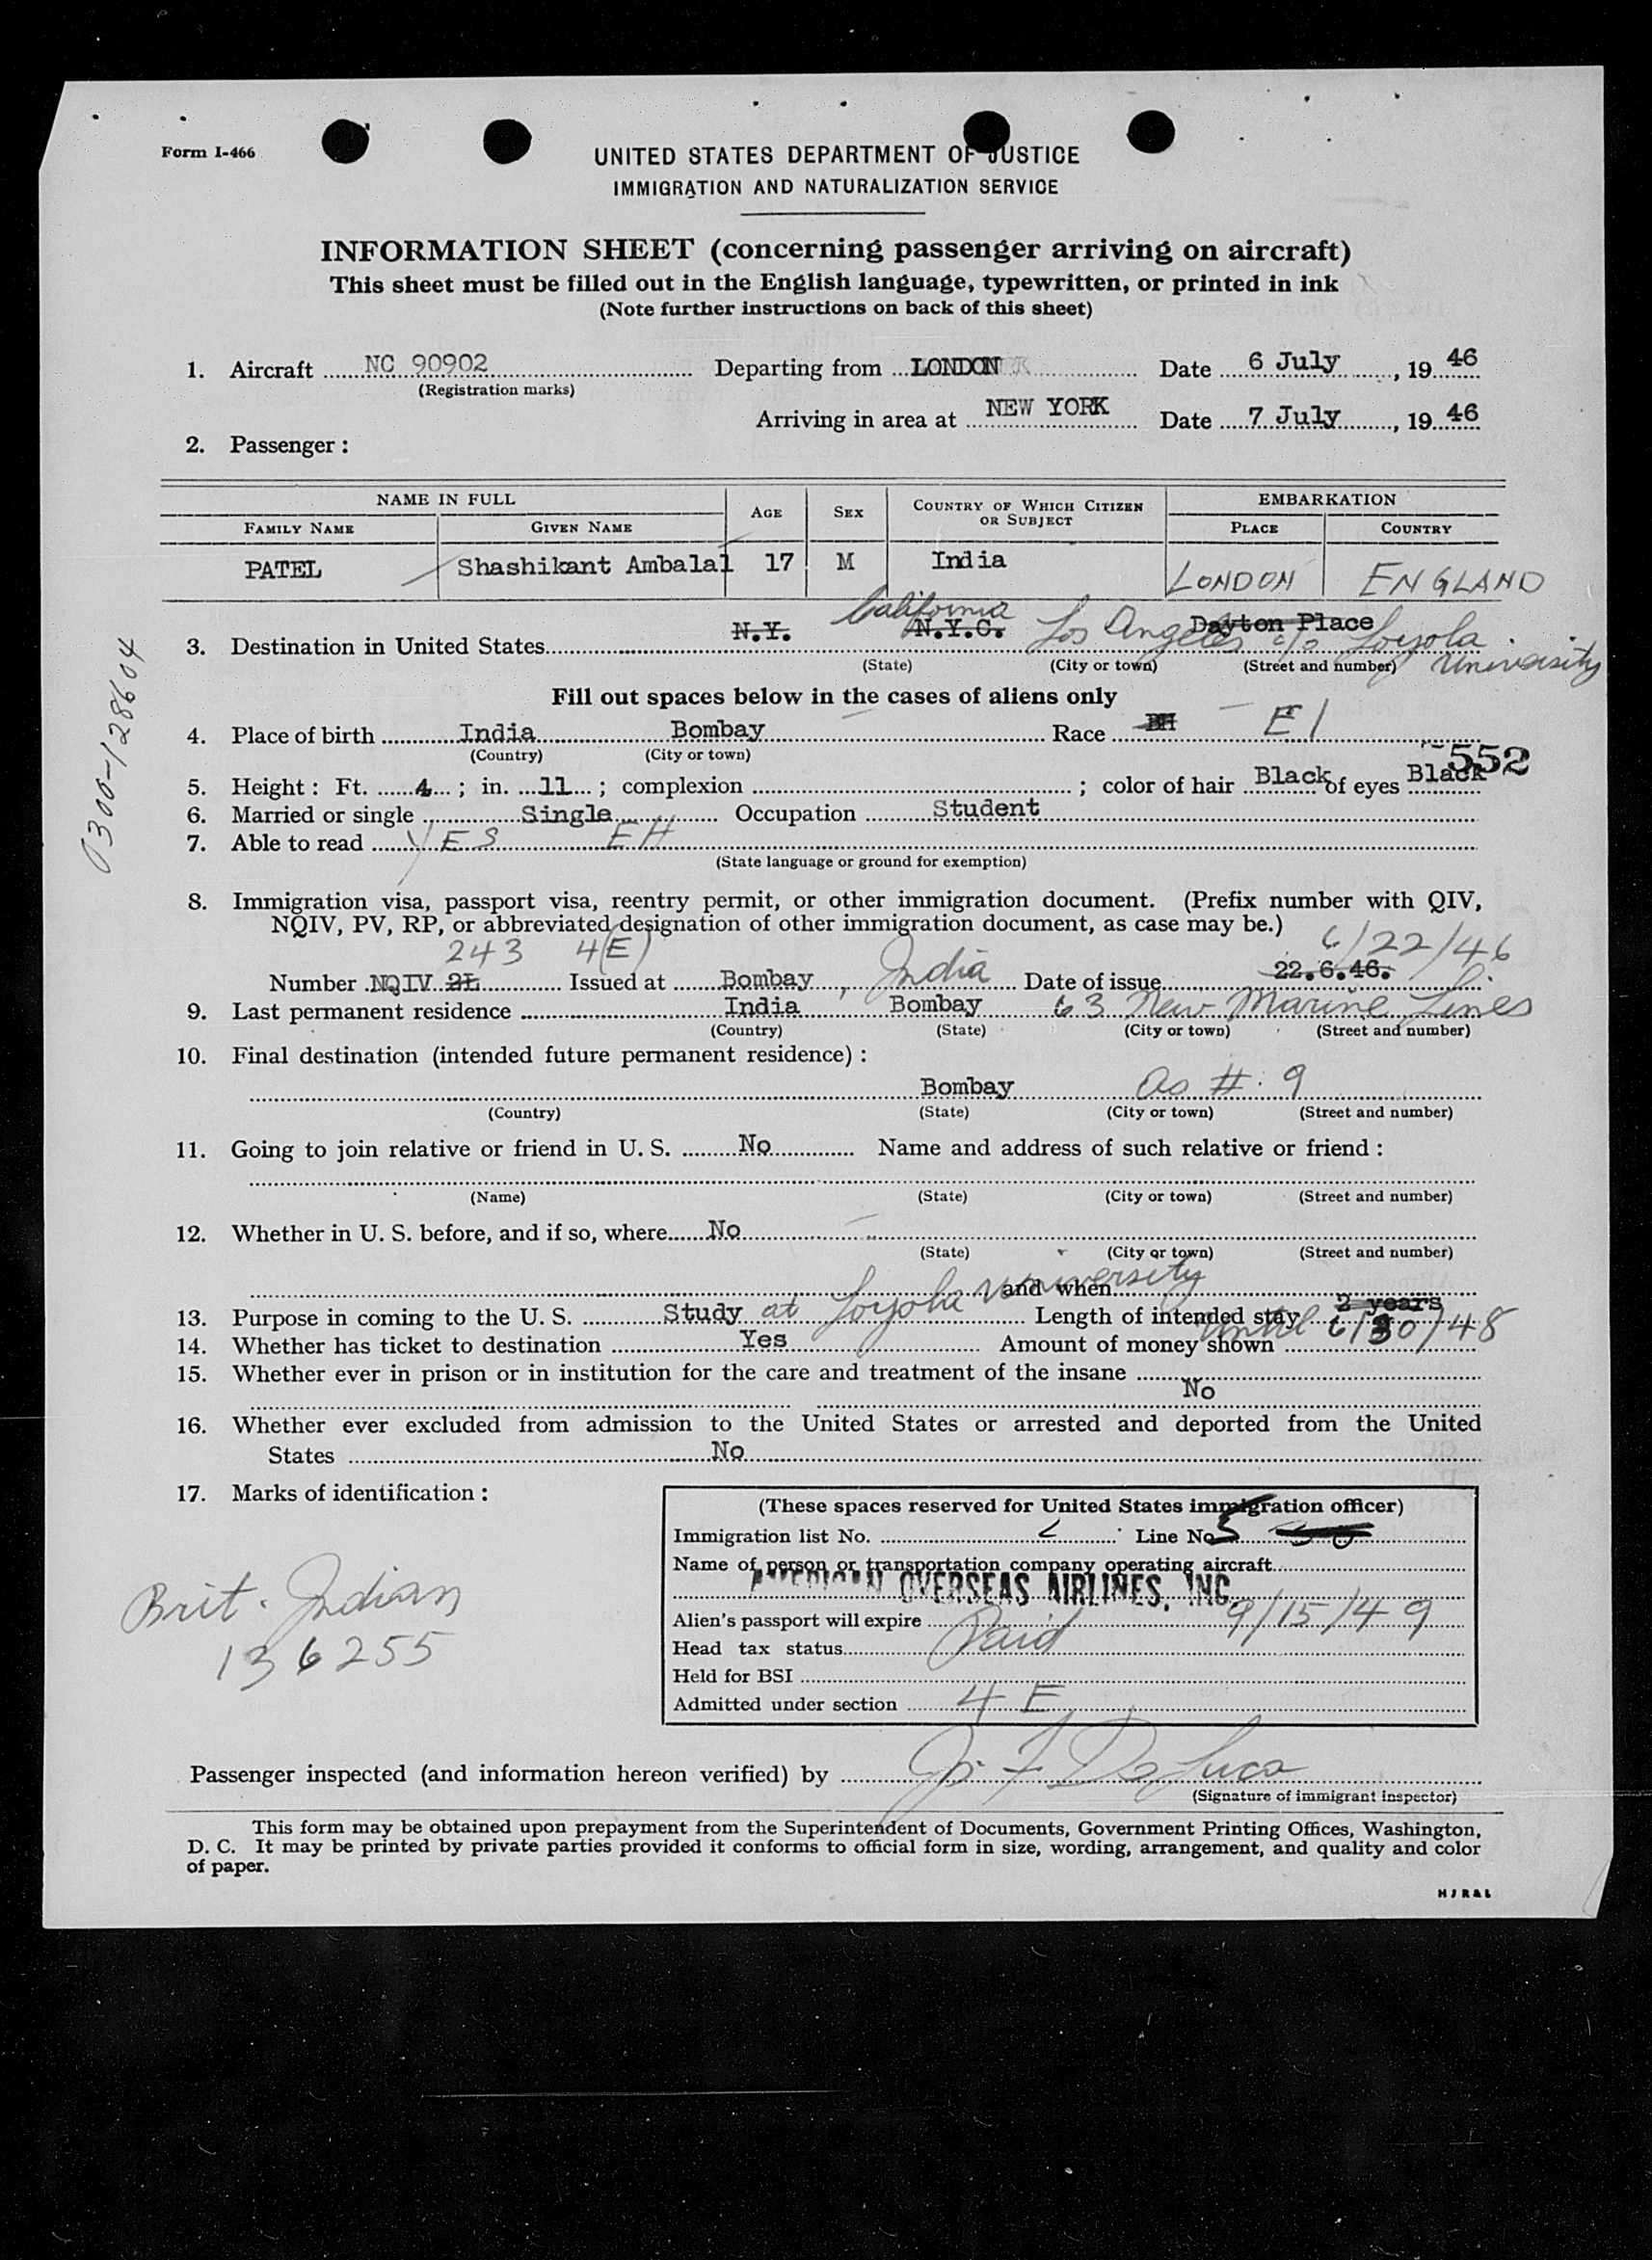 Form I-466
UNITED STATES DEPARTMENT OF JUSTICE
IMMIGRATION AND NATURALIZATION SERVICE
INFORMATION SHEET (concerning passenger arriving on aircraft)
This sheet must be filled out in the English language, typewritten, or printed in ink
(Note further instructions on back of this sheet)
1. Aircraft NC 90902 Departing from LONDON Date 6 July, 19 46
(Registration marks)
Arriving in area at NEW YORK Date 7 July, 19 46
2. Passenger:
NAME IN FULL AGE SEX COUNTRY OF WHICH CITIZEN OR SUBJECT EMBARKATION
FAMILY NAME GIVEN NAME PLACE COUNTRY
PATEL Shashikant Ambalal 17 M India LONDON ENGLAND
California Dayton Place
3. Destination in United States N.Y. N.Y.C. Los Angeles c/o Loyola University
(State) (City or town) (Street and number)
0300-128604
Fill out spaces below in the cases of aliens only
4. Place of birth India Bombay Race EI
(Country) (City or town)
552
5. Height: Ft. 4; in. 11; complexion ; color of hair Black of eyes Black
6. Married or single Single Occupation Student
7. Able to read YES EH
(State language or ground for exemption)
8. Immigration visa, passport visa, reentry permit, or other immigration document. (Prefix number with QIV,
NQIV, PV, RP, or abbreviated designation of other immigration document, as case may be.)
243 4(E) 6/22/46
Number NQIV Issued at Bombay, India Date of issue 22.6.46.
9. Last permanent residence India Bombay 63 New Marine Lines
(Country) (State) (City or town) (Street and number)
10. Final destination (intended future permanent residence):
Bombay As #. 9
(Country) (State) (City or town) (Street and number)
11. Going to join relative or friend in U. S. No Name and address of such relative or friend:
(Name) (State) (City or town) (Street and number)
12. Whether in U. S. before, and if so, where No
(State) (City or town) (Street and number)
and when
13. Purpose in coming to the U. S. Study at Loyola University Length of intended stay 2 years until 6/30/48
14. Whether has ticket to destination Yes Amount of money shown
15. Whether ever in prison or in institution for the care and treatment of the insane
No
16. Whether ever excluded from admission to the United States or arrested and deported from the United
States No
17. Marks of identification:
Brit. Indian
136255
(These spaces reserved for United States immigration officer)
Immigration list No. Line No. 5
Name of person or transportation company operating aircraft
AMERICAN OVERSEAS AIRLINES, INC.
Alien's passport will expire 9/15/49
Head tax status Paid
Held for BSI
Admitted under section 4 E
Passenger inspected (and information hereon verified) by
(Signature of immigrant inspector)
This form may be obtained upon prepayment from the Superintendent of Documents, Government Printing Offices, Washington,
D. C. It may be printed by private parties provided it conforms to official form in size, wording, arrangement, and quality and color
of paper.